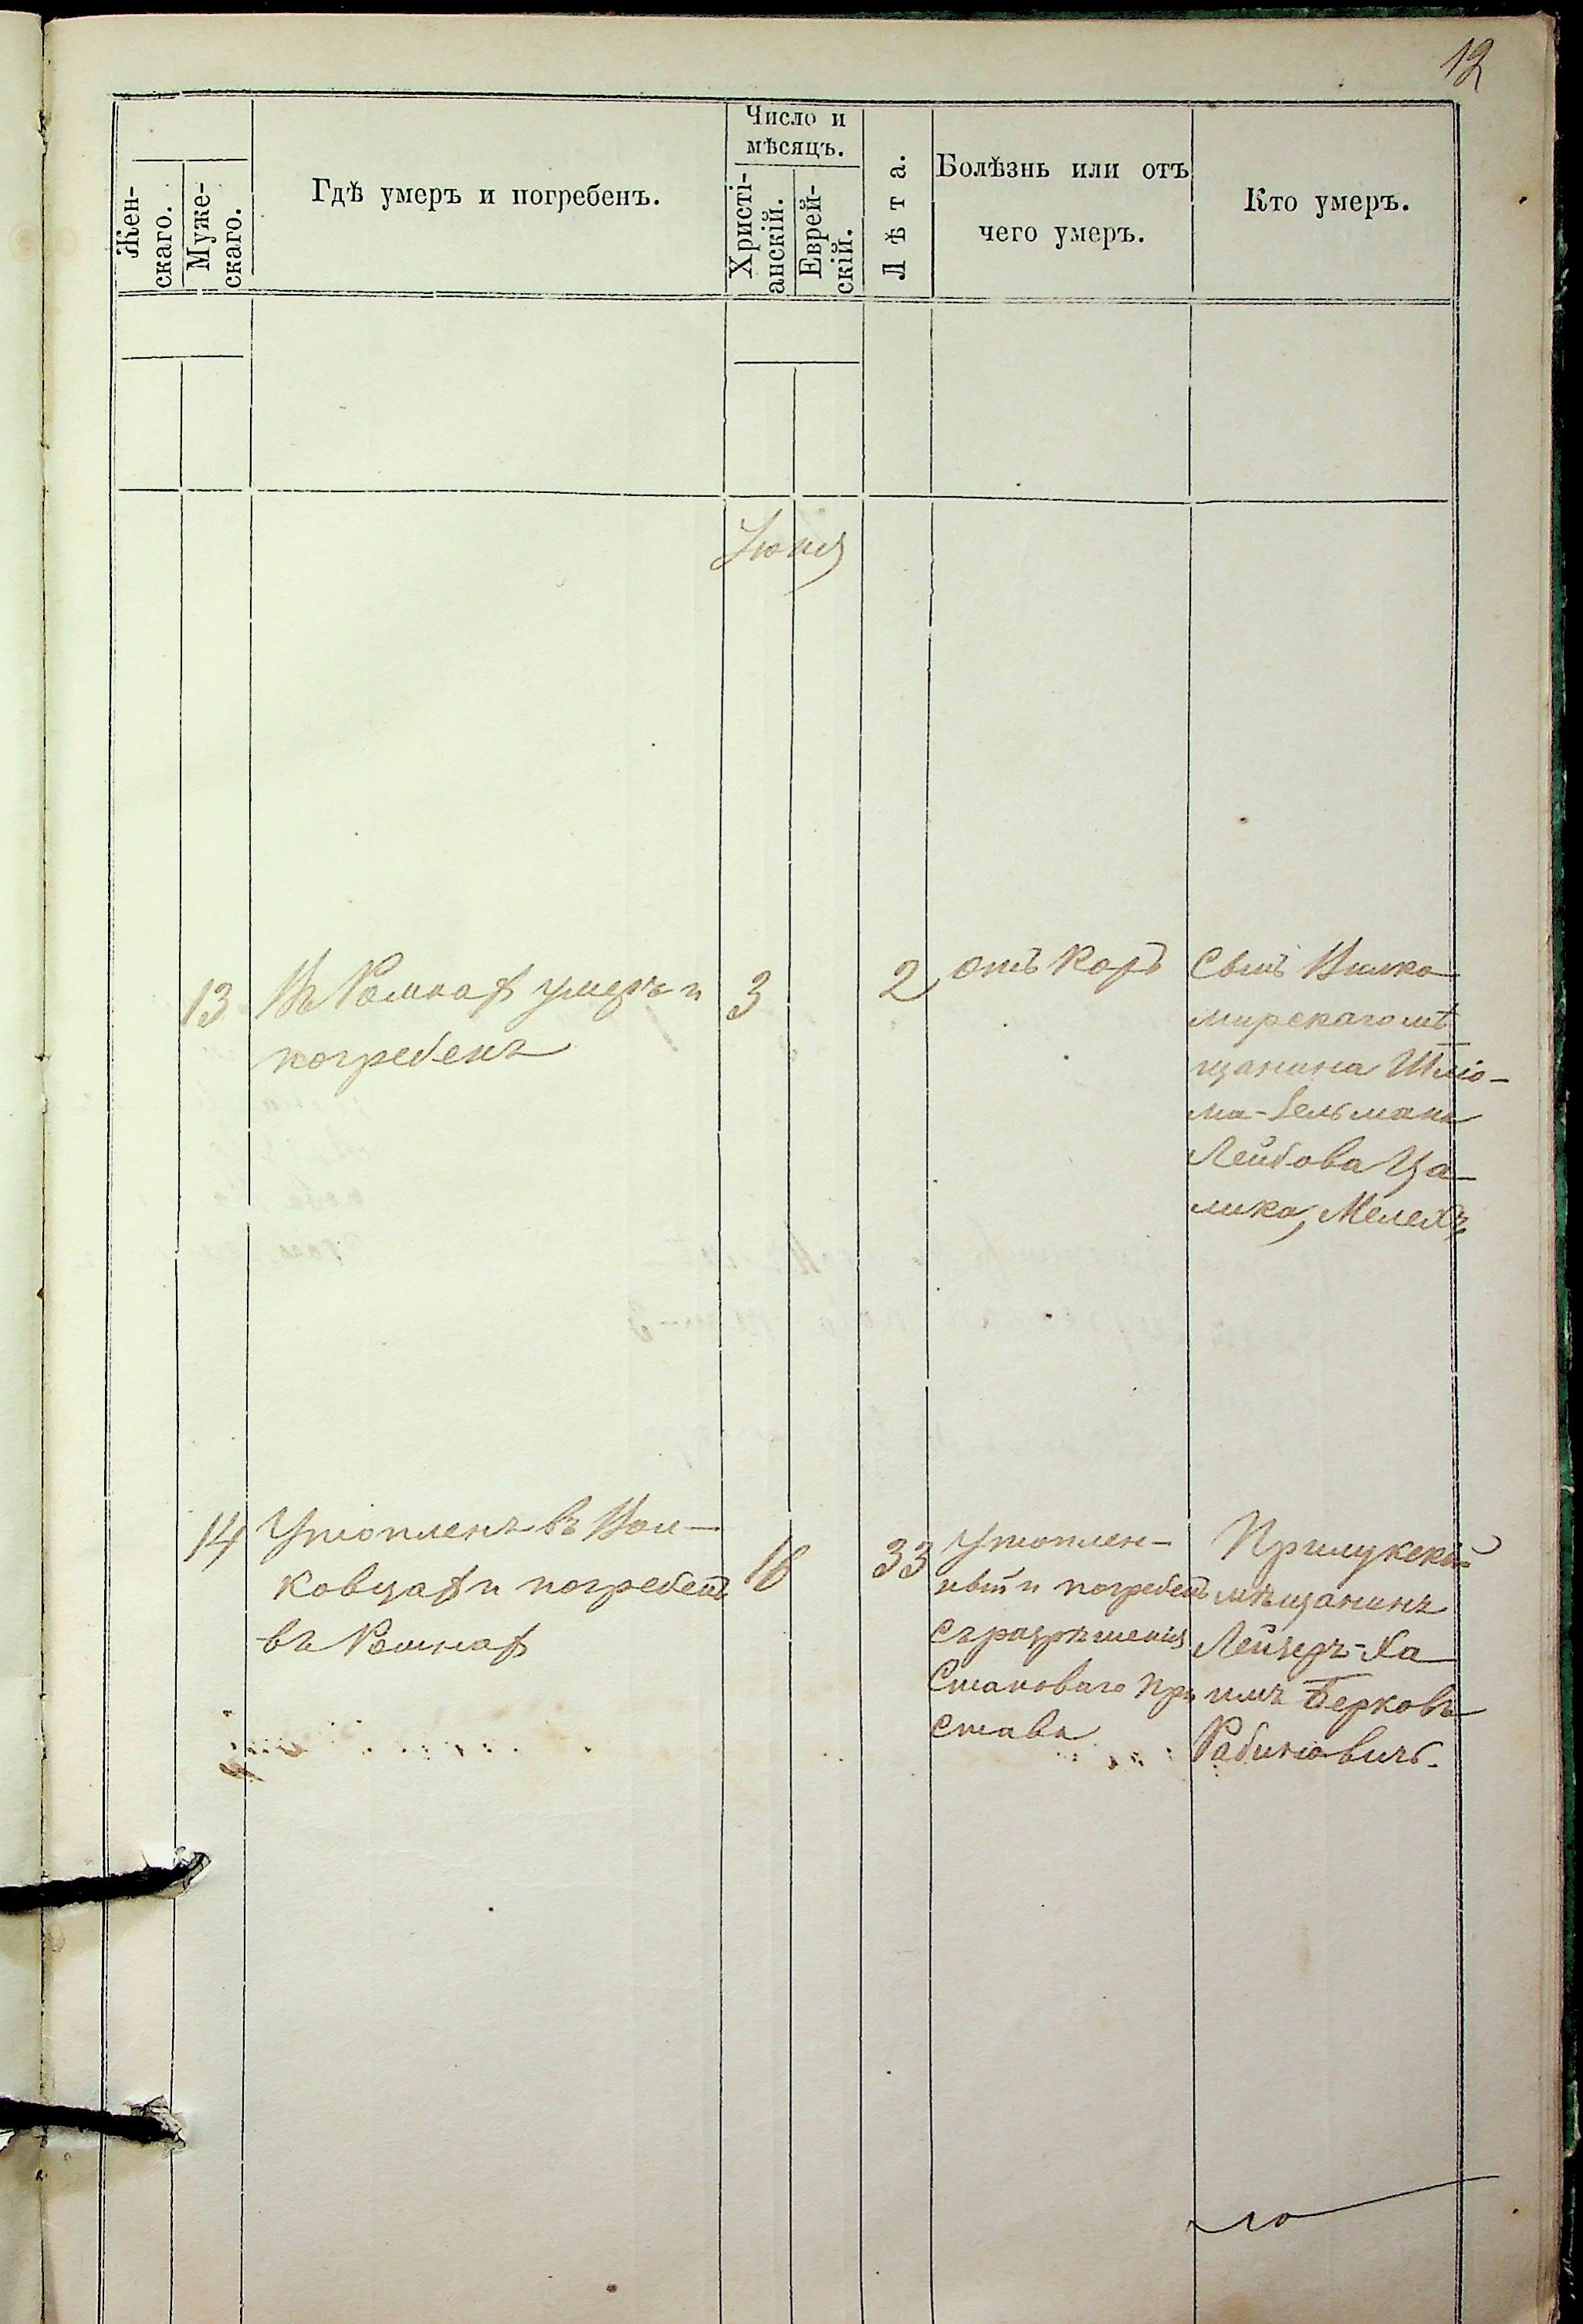 12
Жен-
скаго.
Муже-
скаго.
Гдѣ умеръ и погребенъ.
Число и
мѣсяцъ.
Христі-
анскій.
Еврей-
скій.
Лѣта.
Болѣзнь или отъ
чего умеръ.
Кто умеръ.
Іюня
13
Въ Ромнах умеръ и
погребенъ
3
2
отъ Корь
Сынъ Вилко
мирскаго мѣ
щанина Шліо-
ма-Зельмана
Лейбова Ца-
лика, Мелехъ
14
Утопленъ въ
ковцах и погребенъ
въ Ромнах
16
33
Утоплен-
ный и погребенъ
съ разрѣшенія
Становаго При
става
Прилукскій
мѣщанинъ
Лейзеръ-Ха
имъ Берковъ
Рабиновичъ.